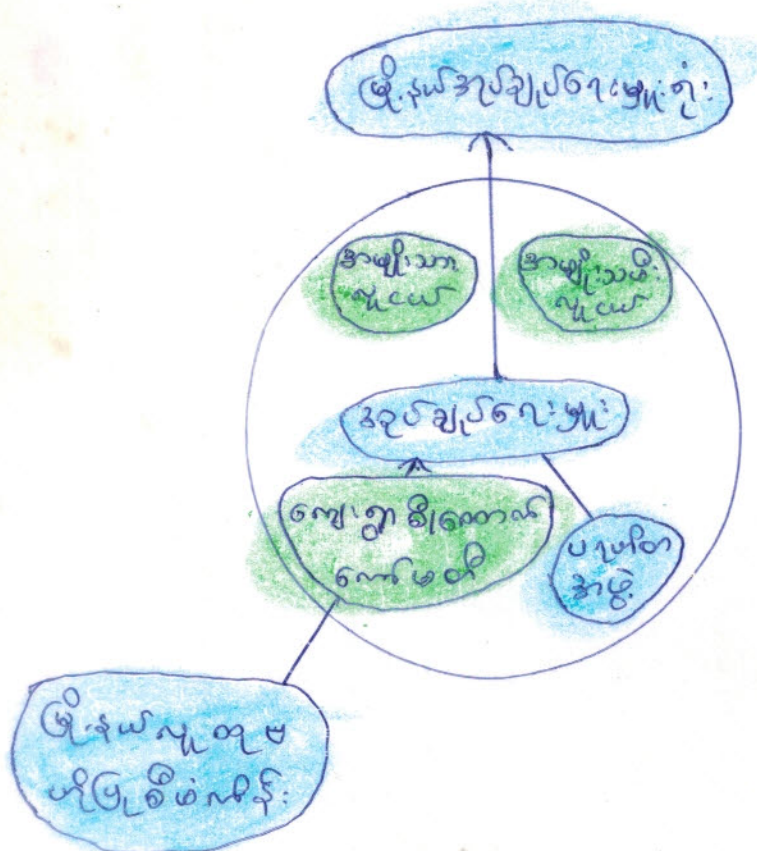 မြို့နယ်အုပ်ချုပ်ရေးမှူးရုံး
အမျိုးသား
လူငယ်
အမျိုးသမီး
လူငယ်
အုပ်ချုပ်ရေးမှူး
ကျေးရွာစီးထောက်
ကော်မတီ
ပရဟိတ
အဖွဲ့
မြို့နယ်လူထုဗ
ဟိုပြုစီမံကိန်း